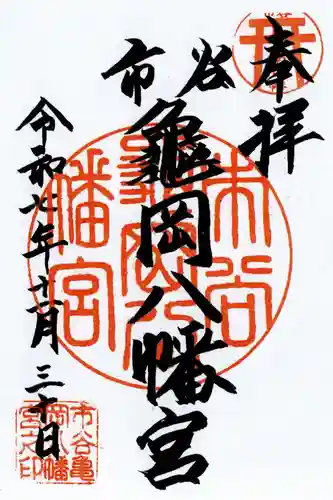 奉拝
市谷
亀岡八幡宮
令和七年十一月三十日
市谷
亀岡八
幡宮
市谷亀
岡八幡
宮之印